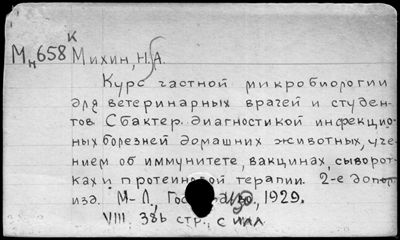 К
Мн658 Михин, Н.А.
Курс частной микробиологии
для ветеринарных врачей и студен-
тов С бактер. диагностикой инфекцион-
ных болезней домашних животных, уче-
нием об иммунитете, вакцинах, сыворот-
ках и протеиновой терапии. 2-е допол.
изд. М-Л., 1929.
VIII, 386 стр., с илл.